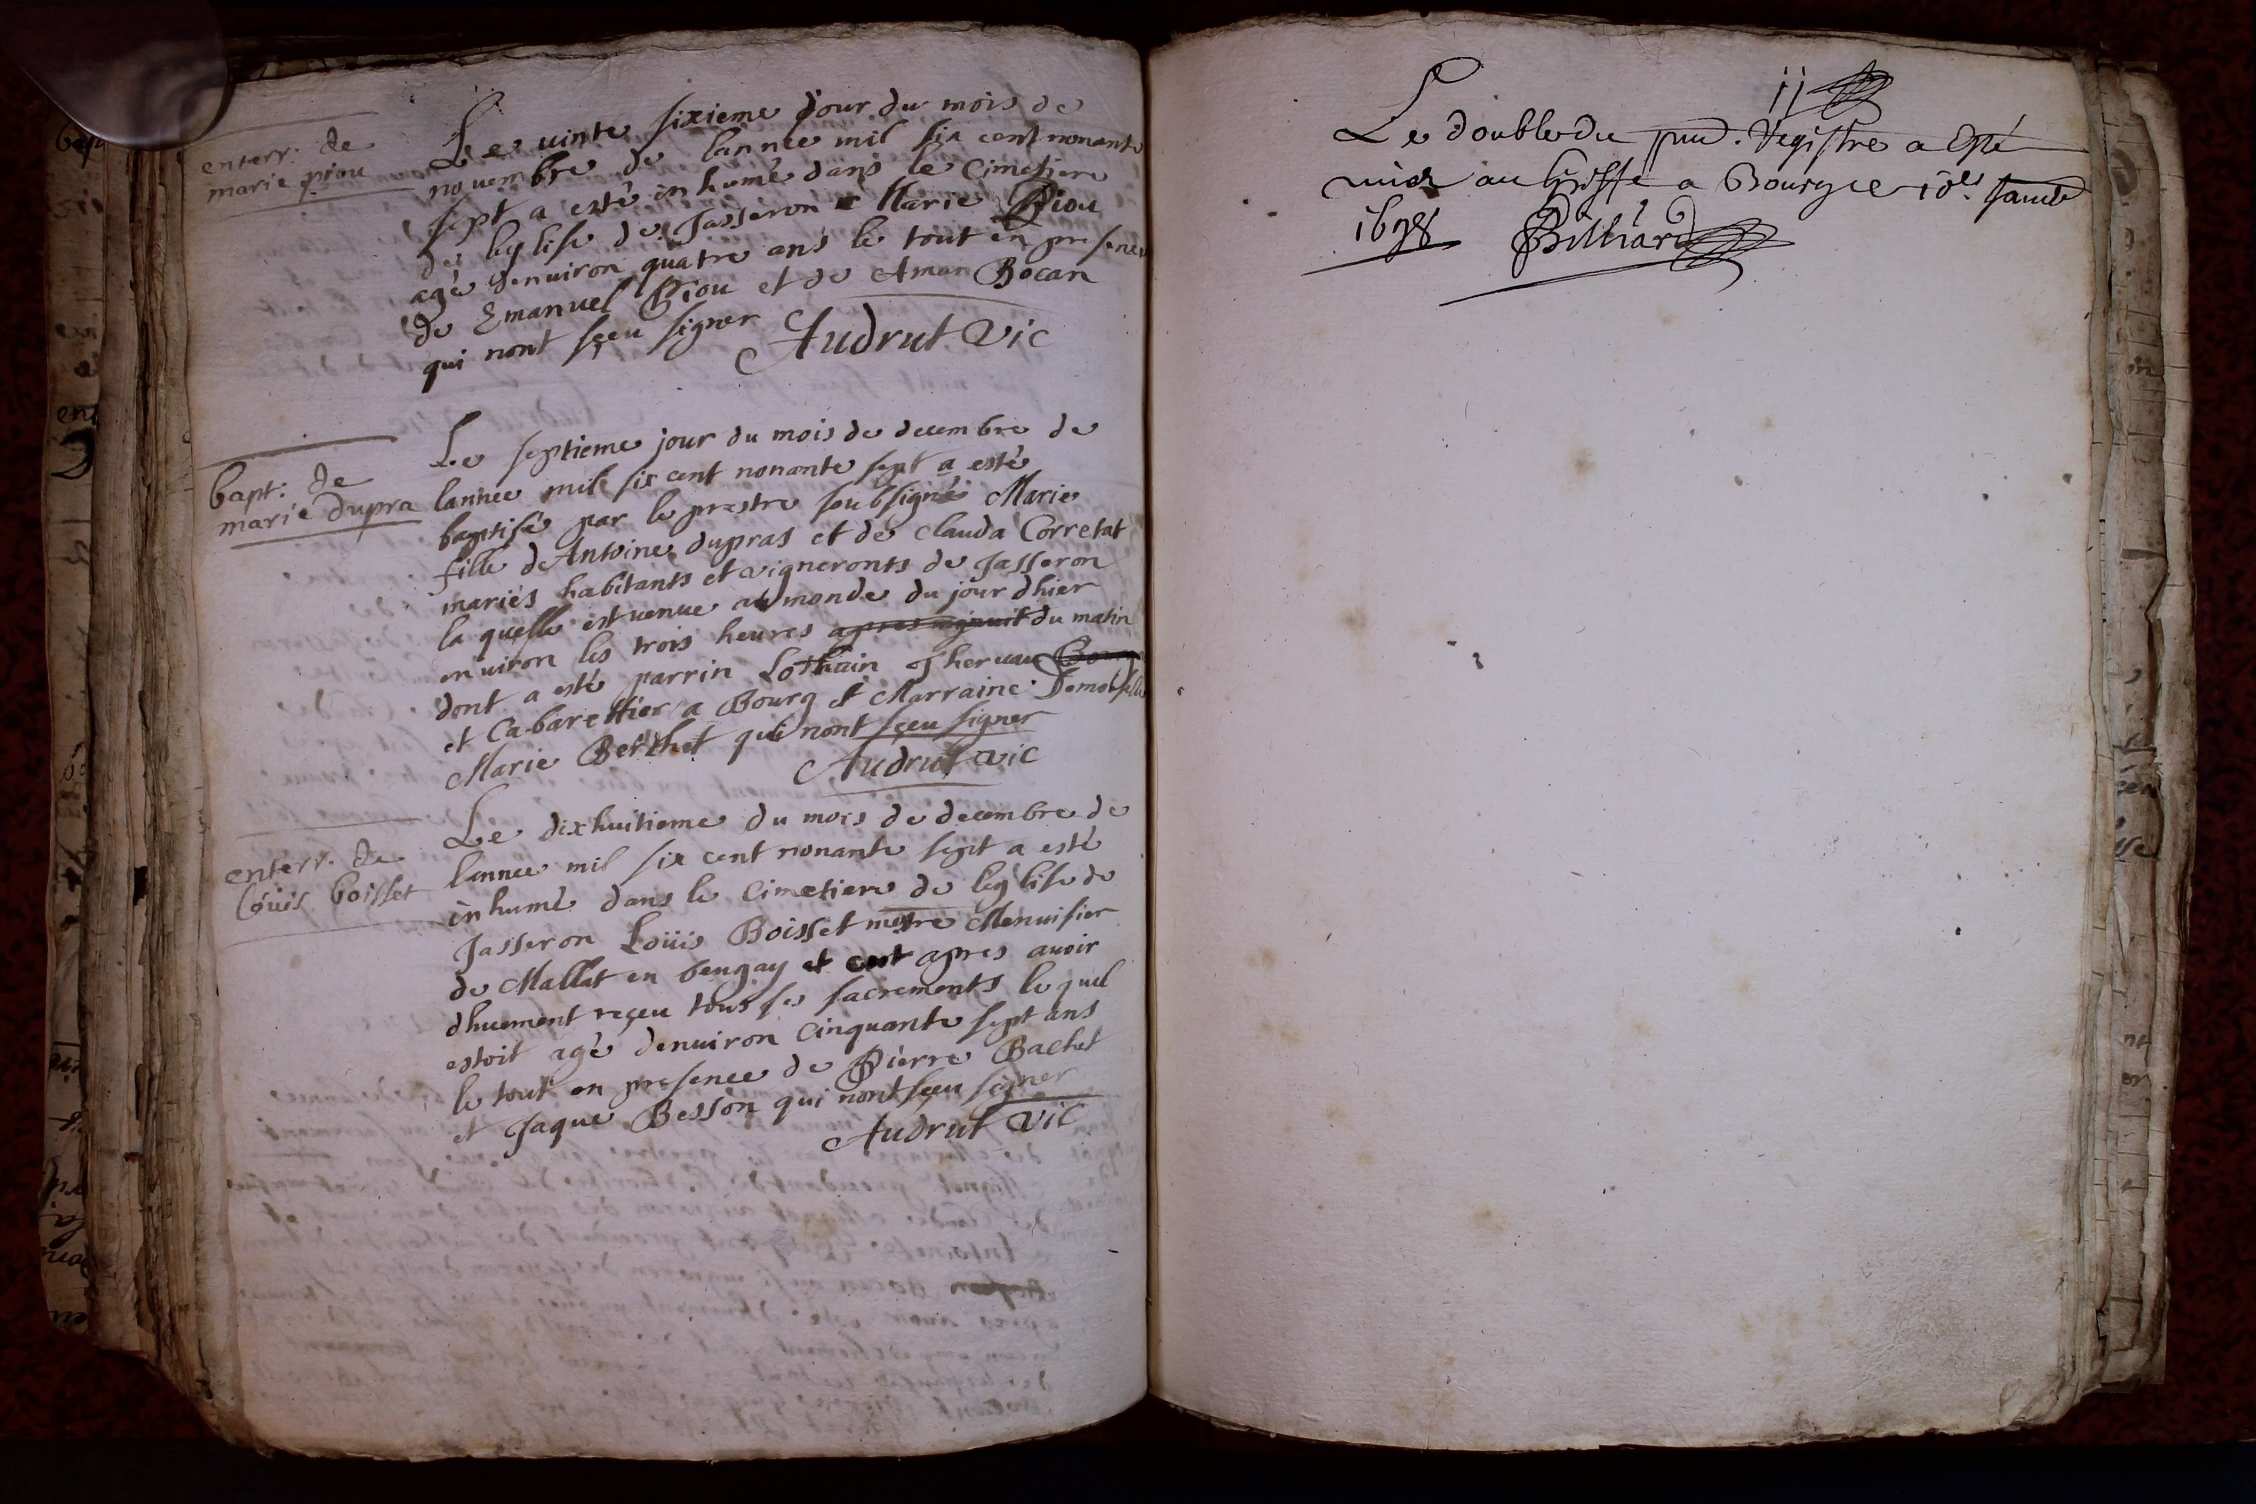 enterr: de
marie piou
Le vinte sixieme jour du mois de
novembre de lannee mil six cent nonante
sept a esté inhumé dans le Cimetiere
de leglise de Jasseron Marie Piou
agé denuiron quatre ans le tout en presence
de Emanuel Piou et de Aman Bocan
qui nont sçeu signer
Audrut vic
bapt: de
marie dupra
Le septieme jour du mois de decembre de
lannee mil six cent nonante sept a esté
baptisé par le prestre soubsigné Marie
fille de Antoine dupras et de Clauda Corretat
mariés habitants et vigneronts de Jasseron
la quelle est venue au monde du jour dhier
enuiron les trois heures apres minuit du matin
dont a esté parrin Lothain
et Cabarettier a Bourg et Marraine Demoiselle
Marie Berthet qui nont sçeu signer
Audrut vic
enterr. de
Loüis boisset
Le dixhuitieme du mois de decembre de
lannee mil six cent nonante sept a esté
inhumé dans le Cimetiere de leglise de
Jasseron Loüis Boisset metre Menuisier
de Mallat en beugay et apres auoir
dhuement reçeu tous ses sacrements le quel
estoit agé denuiron cinquante sept ans
le tout en presence de Pierre Bachet
et Jaque Besson qui nont sçeu signer
Audrut vic
ij
Le double du pnd. Registre a Esté
mis au Greffe a Bourg ce 10e. Janvie
1698 Billiard